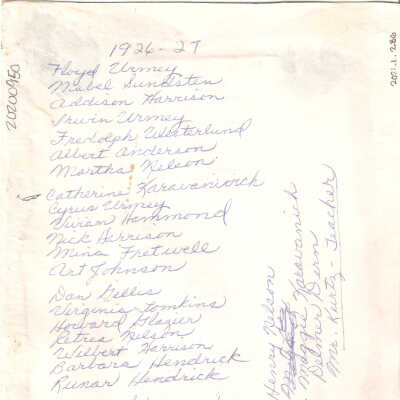 1926-27
Floyd Urmey
Mabel Sundsten
Addison Harrison
Irwin Urmey
Fredolph Westerlund
Albert Anderson
Martha Nelson
Catherine Karavanich
Cyrus Urmey
Vivian Hammond
Nick Harrison
Mina Fretwell
Art Johnson
Dan Gillis
Virginia Tomkins
Howard Glazier
Retrea Nelson
Wilbert Harrison
Barbara Hendrick
Runar Hendrick
Henry Nelson
Maggie Karavanich
Delmer Dern
Mrs. Kurtz - Teacher
20200950